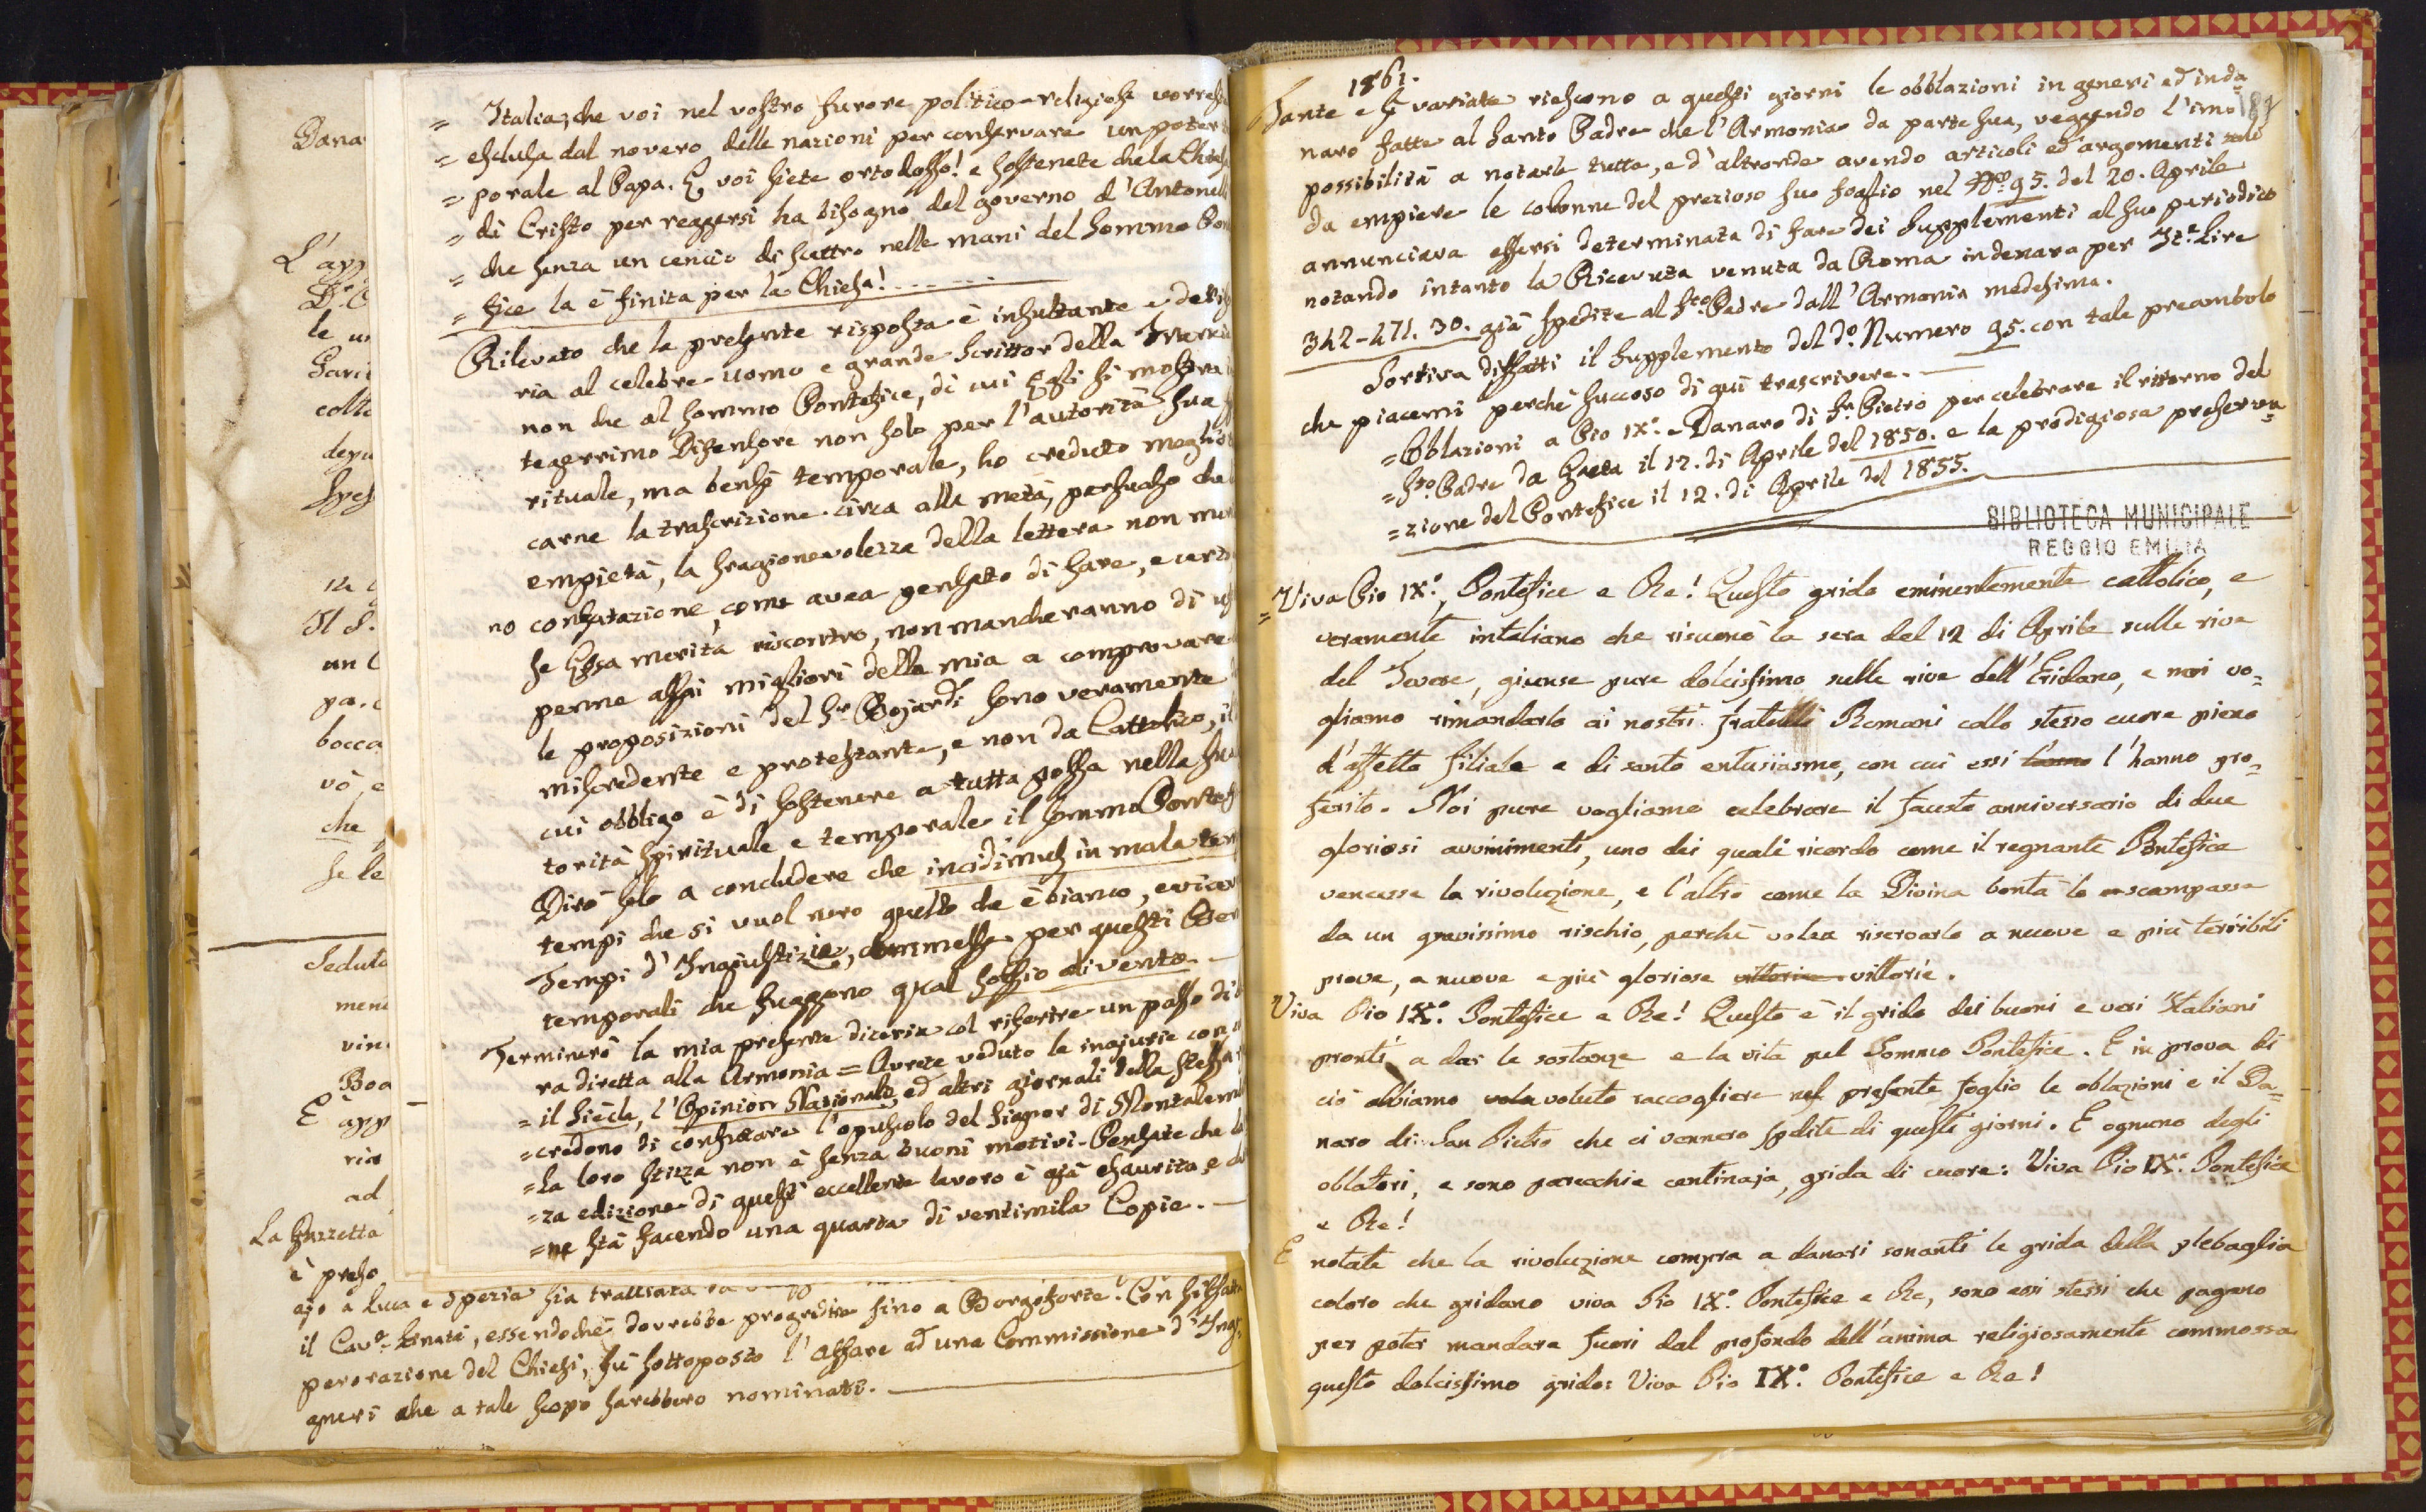 Dana
L'app
D. C
le un
Sari
colto
depu
Spes
un C
pa. e
bocca
vò e
che
Se le
Seduta
mena
vin
Boa
E app
ria
ad
La Gazzetta
è preso
= Italia, che voi nel vostro furore politico-religioso vorres
= esclusa dal novero delle nazioni per conservare un poter
= porale al Papa. E voi siete ortodosso! e sostenete che la Chies
= di Cristo per reggersi ha bisogno del governo d'Antonell
= che senza un cencio di scettro nelle mani del Sommo Pon
= fice la è finita per la Chiesa!
Rilevato che la presente risposta è insultante e deris
ria al celebre uomo e grande Scrittor della
non che al Sommo Pontefice, di cui Egli si mostra
tegerrimo Difensore non solo per l'autorità sua
rituale, ma bensì temporale, ho creduto meglio
carne la trascrizione circa alla metà, persuaso che
empietà, la sragionevolezza della lettera non mer
no confutazione, come avea pensato di fare, e cer
Se Essa merità riscontro, non mancheranno di
penne assai migliori della mia a comprovare
le proposizioni del Sr. Bojardi sono veramente
miscredente e protestante, e non da Cattolico, il
cui obbligo è di sostenere a tutta possa nella sua
torità spirituale e temporale il Sommo Pontef
Dirò solo a concludere che incidimus in mala tem
tempi che si vuol nero quello che è bianco, e vicev
Tempi d'Ingiustizie, commesse per questi Ben
temporali che fuggono qual soffio di vento.
Terminerò la mia presente diceria col riferire un passo di
ra diretta alla Armonia = Avrete veduto le ingiurie con
= il Siècle, l'Opinion Nationale, ed altri giornali della stessa
= credono di confutare l'opuscolo del Signor di Montalem
= La loro stizza non è senza buoni motivi. Pensate che la
= za edizione di questo eccellente lavoro è già esaurita, e
= ne stà facendo una quarta di ventimila Copie.
ajo a Luca e Spezia sia trattata
il Cav.e Linati, essendochè dovrebbe progredire fino a Borgoforte. Con
perorazione del Chiesi, fù sottoposto l'affare ad una Commissione d'Inge
gneri che a tale scopo sarebbero nominati.
1861.
189
Tante e sì variate riescono a questi giorni le obblazioni in generi ed in da
naro fatte al Santo Padre che l'Armonia da parte sua, veggendo l'im
possibilità a notarle tutte, e d'altronde avendo articoli ed argomenti
da empiere le colonne del prezioso suo foglio nel No. 95. del 20. Aprile
annunciava essersi determinata di fare dei Supplementi al suo periodico
notando intanto la Ricevuta venuta da Roma in denaro per It.e Lire
342-471. 30. già spedite al Sto. Padre dall'Armonia medesima.
Sortiva diffatti il Supplemento del do. Numero 95. con tale preambolo
che piacemi perchè succoso di quì trascrivere.
= Obblazioni a Pio IX°. - Danaro di S. Pietro per celebrare il ritorno del
= Sto. Padre da Gaeta il 12. di Aprile del 1850. e la prodigiosa preserva
= zione del Pontefice il 12. di Aprile del 1855.
BIBLIOTECA MUNICIPALE
REGGIO EMILIA
= Viva Pio IX°, Pontefice e Re! Questo grido eminentemente cattolico, e
veramente intaliano che risuonò la sera del 12 di Aprile sulle rive
del Tevere, giunse pure dolcissimo sulle rive dell'Eridano, e noi vo=
gliamo rimandarlo ai nostri fratelli Romani collo stesso cuore pieno
d'affetto filiale e di santo entusiasmo, con cui essi l'hanno pro=
ferito. Noi pure vogliamo celebrare il fausto anniversario di due
gloriosi avvinimenti, uno dei quali ricorda come il regnante Pontefice
vencesse la rivoluzione, e l'altro come la Divina bontà lo scampasse
da un gravissimo rischio, perchè volea riserbarlo a nuove e più terribili
prove, a nuove e più gloriose vittorie vittorie.
Viva Pio IX°. Pontefice e Re! Questo è il grido dei buoni e veri Italiani
pronti a dar le sostanze e la vita pel Sommo Pontefice. E in prova di
ciò abbiamo vole voluto raccogliere nel presente foglio le oblazioni e il Da=
naro di San Pietro che ci vennero spedite di questi giorni. E ognuno degli
oblatori, e sono parecchie centinaja, grida di cuore: Viva Pio IX°. Pontefice
e Re!
E notate che la rivoluzione compra a danari sonanti le grida della plebaglia
coloro che gridano viva Pio IX°. Pontefice e Re, sono essi stessi che pagano
per poter mandare fuori dal profondo dell'anima religiosamente commossa
questo dolcissimo grido: Viva Pio IX°. Pontefice e Re!